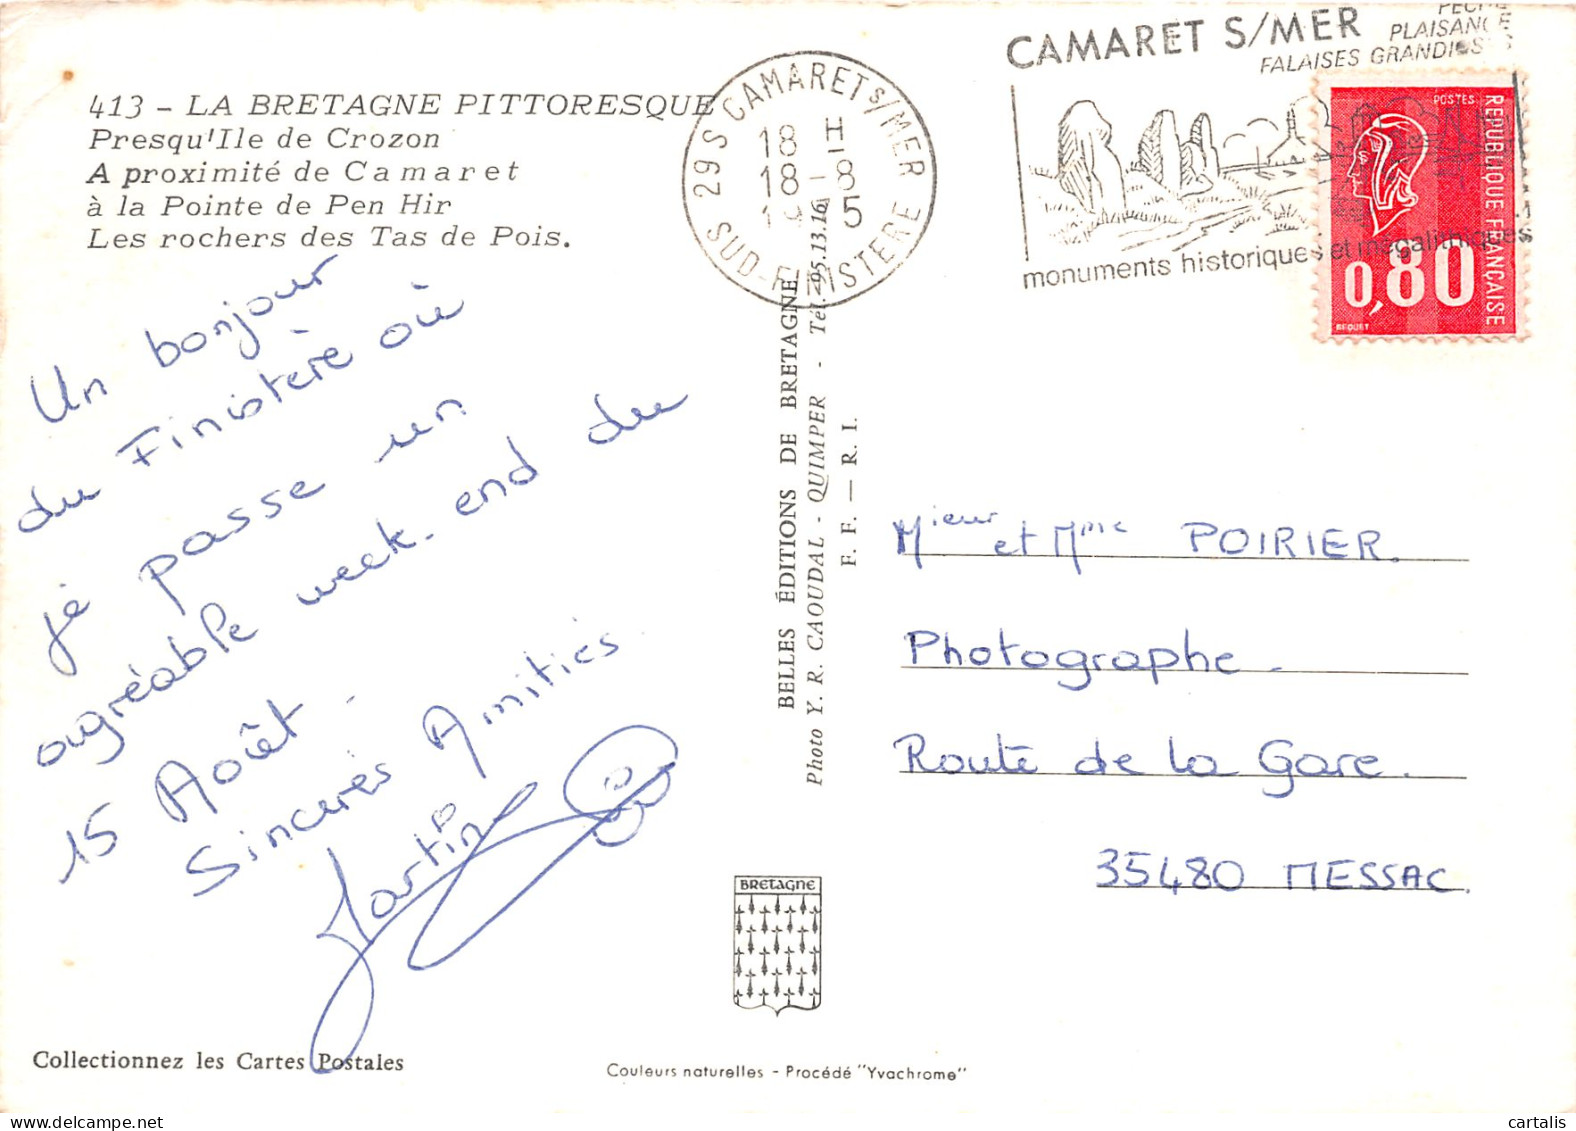 413 - LA BRETAGNE PITTORESQUE
Presqu'Ile de Crozon
A proximité de Camaret
à la Pointe de Pen Hir
Les rochers des Tas de Pois.
Un bonjour
du Finistère où
je passe un
agréable week-end du
15 Août -
Sincères Amitiés
Martin
Collectionnez les Cartes Postales
29 S CAMARET S/MER
18 H
18-8
SUD-FINISTERE
CAMARET S/MER
PLAISANCE
FALAISES GRANDIOSES
monuments historiques et mégalithiques
POSTES
REPUBLIQUE FRANCAISE
0,80
BEQUET
BELLES ÉDITIONS DE BRETAGNE
Photo Y. R. CAOUDAL - QUIMPER - Tél. 95.13.16
F. F. — R. I.
Mieur et Mme POIRIER.
Photographe.
Route de la Gare.
35480 MESSAC.
BRETAGNE
Couleurs naturelles - Procédé "Yvachrome"
cartalis